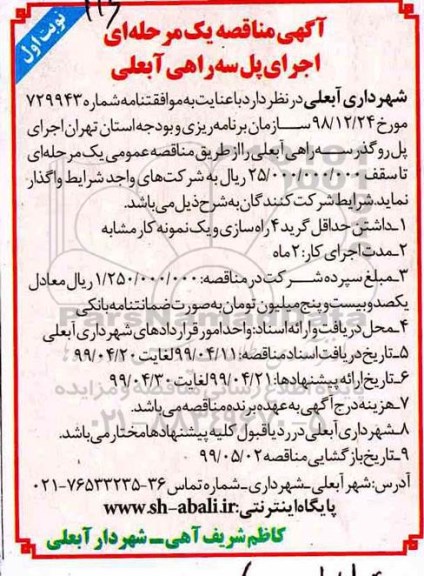 نوبت اول
آگهی مناقصه یک مرحله‌ای
اجرای پل سه راهی آبعلی
شهرداری آبعلی در نظر دارد با عنایت به موافقتنامه شماره ۷۲۹۹۴۳
مورخ ۹۸/۱۲/۲۴ سازمان برنامه ریزی و بودجه استان تهران اجرای
پل روگذر سه راهی آبعلی را از طریق مناقصه عمومی یک مرحله‌ای
تا سقف ۲۵/۰۰۰/۰۰۰/۰۰۰ ریال به شرکت‌های واجد شرایط واگذار
نماید. شرایط شرکت کنندگان به شرح ذیل می‌باشد.
۱ـ داشتن حداقل گرید ۴ راه سازی و یک نمونه کار مشابه
۲ـ مدت اجرای کار: ۲ ماه
۳ـ مبلغ سپرده شرکت در مناقصه: ۱/۲۵۰/۰۰۰/۰۰۰ ریال معادل
یکصد و بیست و پنج میلیون تومان به صورت ضمانتنامه بانکی
۴ـ محل دریافت و ارائه اسناد: واحد امور قراردادهای شهرداری آبعلی
۵ـ تاریخ دریافت اسناد مناقصه: ۹۹/۰۴/۱۱ لغایت ۹۹/۰۴/۲۰
۶ـ تاریخ ارائه پیشنهادها: ۹۹/۰۴/۲۱ لغایت ۹۹/۰۴/۳۰
۷ـ هزینه درج آگهی به عهده برنده مناقصه می‌باشد.
۸ـ شهرداری آبعلی در رد یا قبول کلیه پیشنهادها مختار می‌باشد.
۹ـ تاریخ بازگشایی مناقصه ۹۹/۰۵/۰۲
آدرس: شهر آبعلی ـ شهرداری ـ شماره تماس ۳۶-۷۶۵۳۳۲۳۵-۰۲۱
پایگاه اینترنتی: www.sh-abali.ir
کاظم شریف آهی ـ شهردار آبعلی